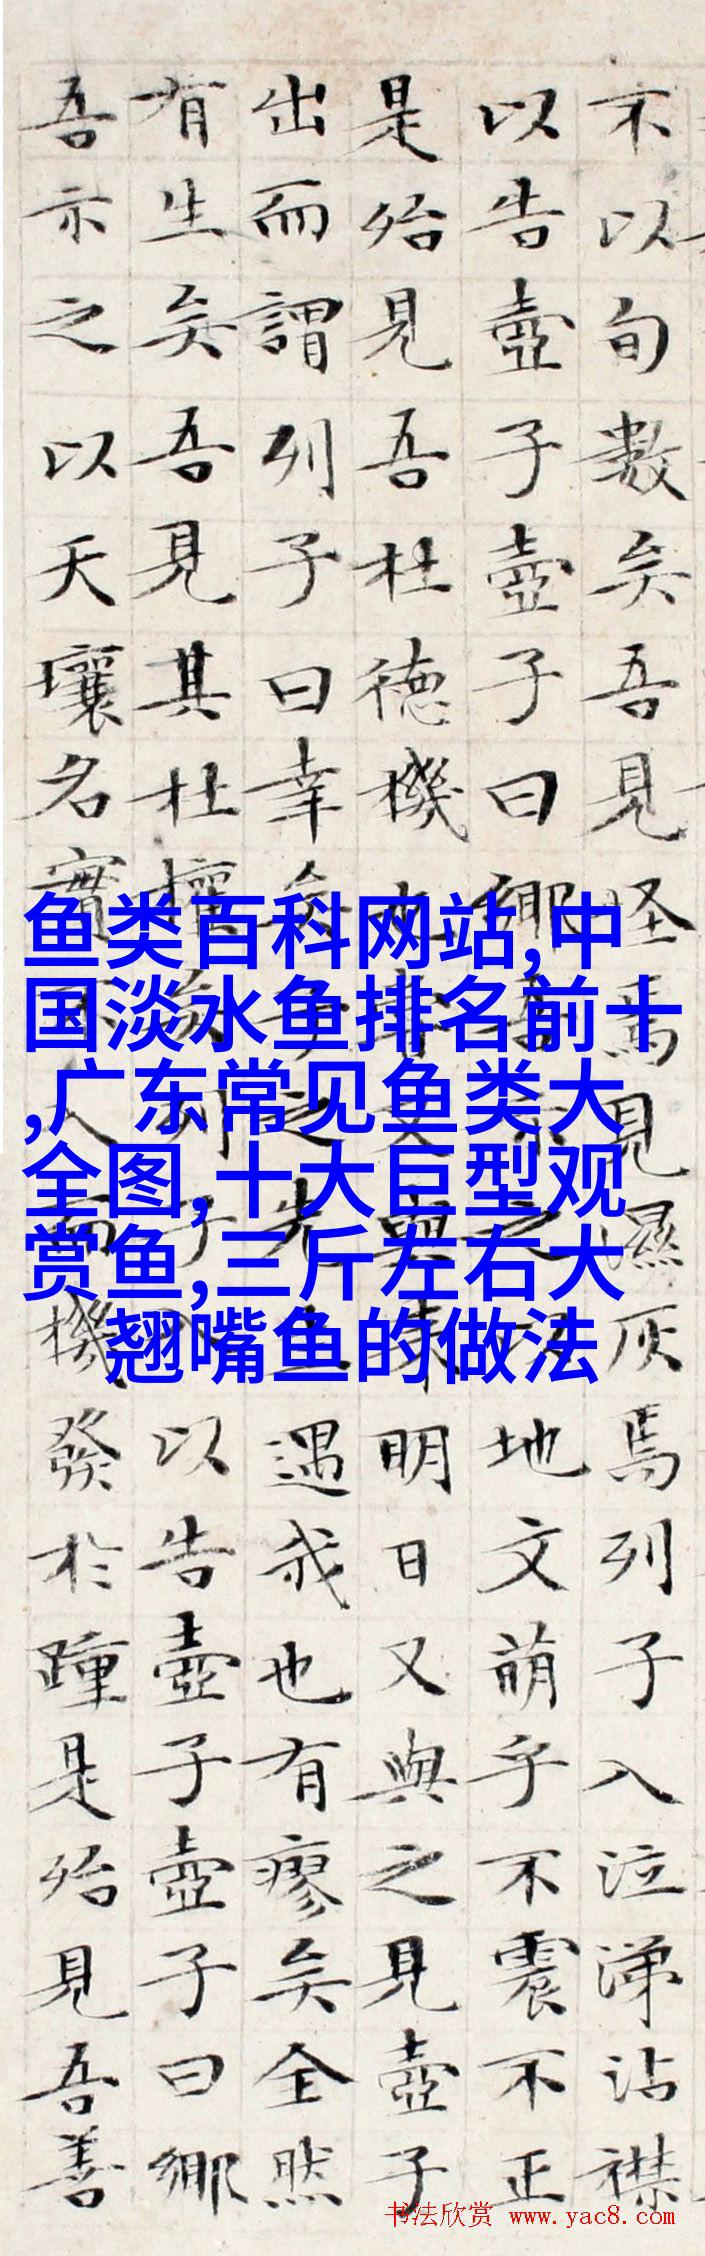 不以旬數矣吾見怪焉見濕灰焉列子入泣涕沾襟
以告壺子壺子曰鄉吾示之以地文萌乎不震不正
是殆見吾杜德機也嘗又與來明日又與之見壺子
出而謂列子曰幸矣子之先生遇我也有瘳矣全然
有生矣吾見其杜權矣列子入以告壺子壺子曰鄉
吾示之以天壤名實不入而機發於踵是殆見吾善
鱼类百科网站,中
国淡水鱼排名前十
,广东常见鱼类大
全图,十大巨型观
赏鱼,三斤左右大
翘嘴鱼的做法
书法欣赏 www.yac8.com